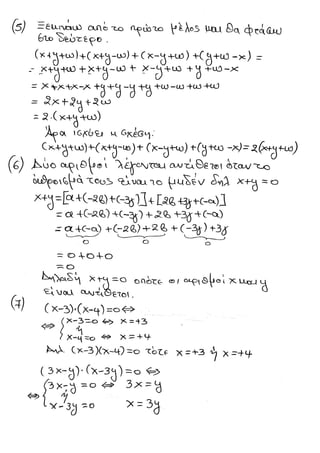 (5) Ξεκινάω από το πρώτο μέλος και θα φτάσω
στο δεύτερο.
(x+y+ω)+(x+y-ω)+(x-y+ω)+(y+ω-x) =
= x+y+ω+x+y-ω+x-y+ω+y+ω-x
= x+x+x-x+y+y-y+y+ω-ω+ω+ω
= 2x+2y+2ω
= 2·(x+y+ω)
Άρα ισχύει η σχέση.
(x+y+ω)+(x+y-ω)+(x-y+ω)+(y+ω-x)=2(x+y+ω)
(6) Δύο αριθμοί λέγονται αντίθετοι όταν το
άθροισμά τους είναι το μηδέν δηλ x+y=0
x+y=[α+(-2β)+(-3γ)]+[2β+3γ+(-α)]
=α+(-2β)+(-3γ)+2β+3γ+(-α)
=α+(-α)+(-2β)+2β+(-3γ)+3γ
0 0 0
=0+0+0
=0
Δηλαδή x+y=0 οπότε οι αριθμοί x και y
είναι αντίθετοι.
(7) (x-3)·(x-4)=0⇔
⇔ { x-3=0 ⇔ x=+3
ή
x-4=0 ⇔ x=+4
Δηλ (x-3)(x-4)=0 τότε x=+3 ή x=+4
(3x-y)·(x-3y)=0 ⇔
⇔ { 3x-y=0 ⇔ 3x=y
ή
x-3y=0 x=3y